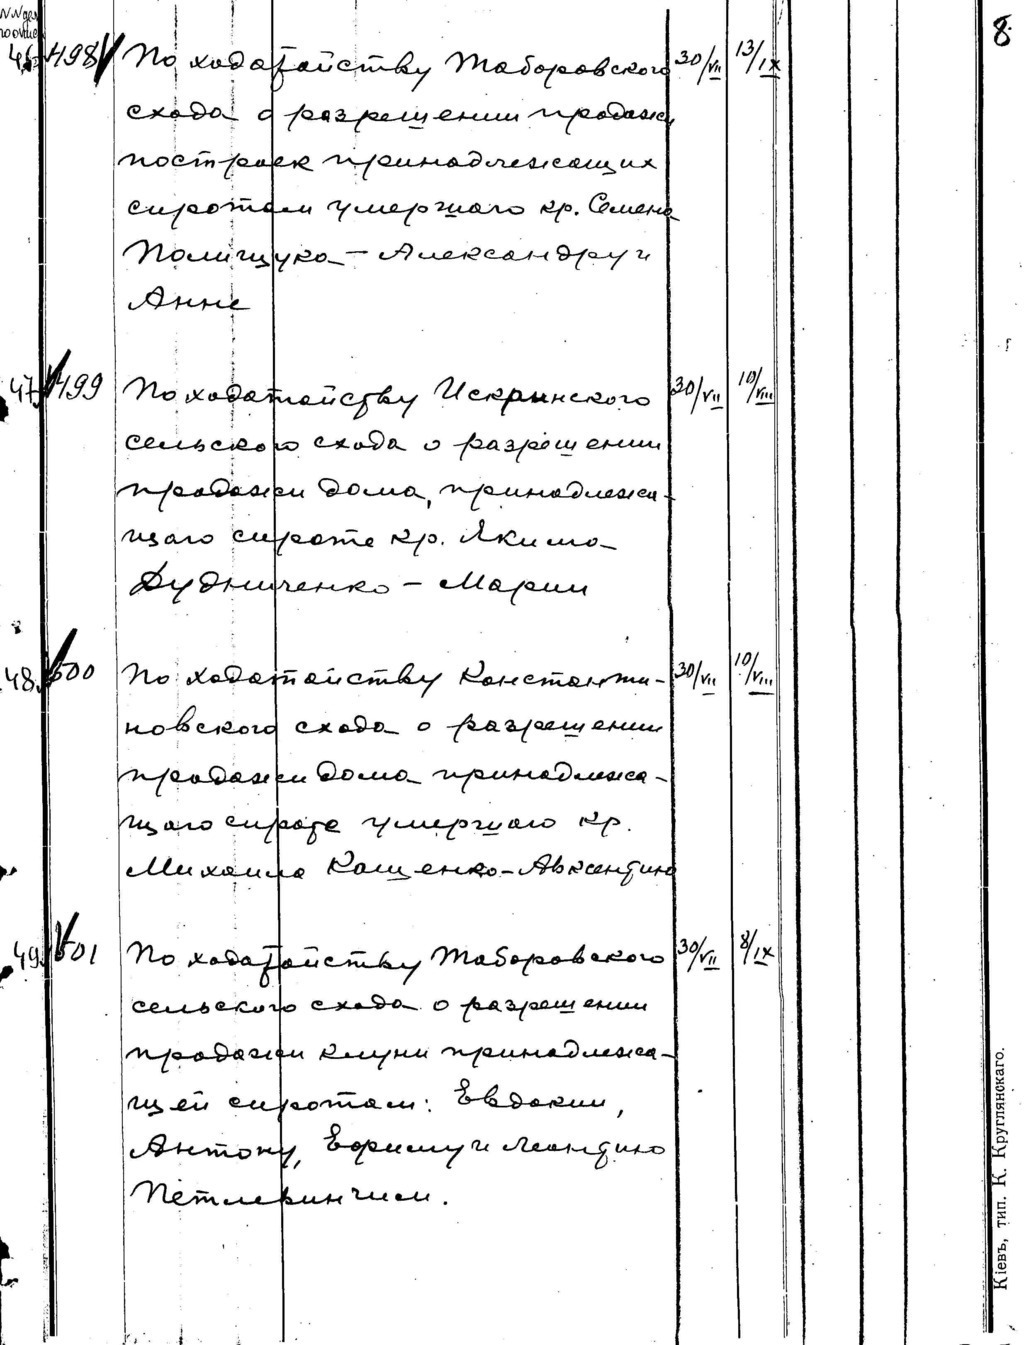 8.
46. 498 По ходатайству Таборовского 30/VII 13/IX
схода о разрешении продажи
построек принадлежащих
сиротам умершаго кр. Семена
Полищука – Александру и
Анне
47. 499 По ходатайству Искринского 30/VII 10/VIII
сельского схода о разрешении
продажи дома, принадлежа-
щаго сироте кр. Якима
Дудниченко – Марии
48. 500 По ходатайству Константи- 30/VII 10/VIII
новского схода о разрешении
продажи дома принадлежа-
щаго сироте умершаго кр.
Михаила Кащенко – Авксентию
49. 501 По ходатайству Таборовского 30/VII 8/IX
сельского схода о разрешении
продажи клуни принадлежа-
щей сиротам: Евдокии,
Антону, Ефиму и Леонтию
Петлеванчим.
Кіевъ, тип. К. Круглянскаго.